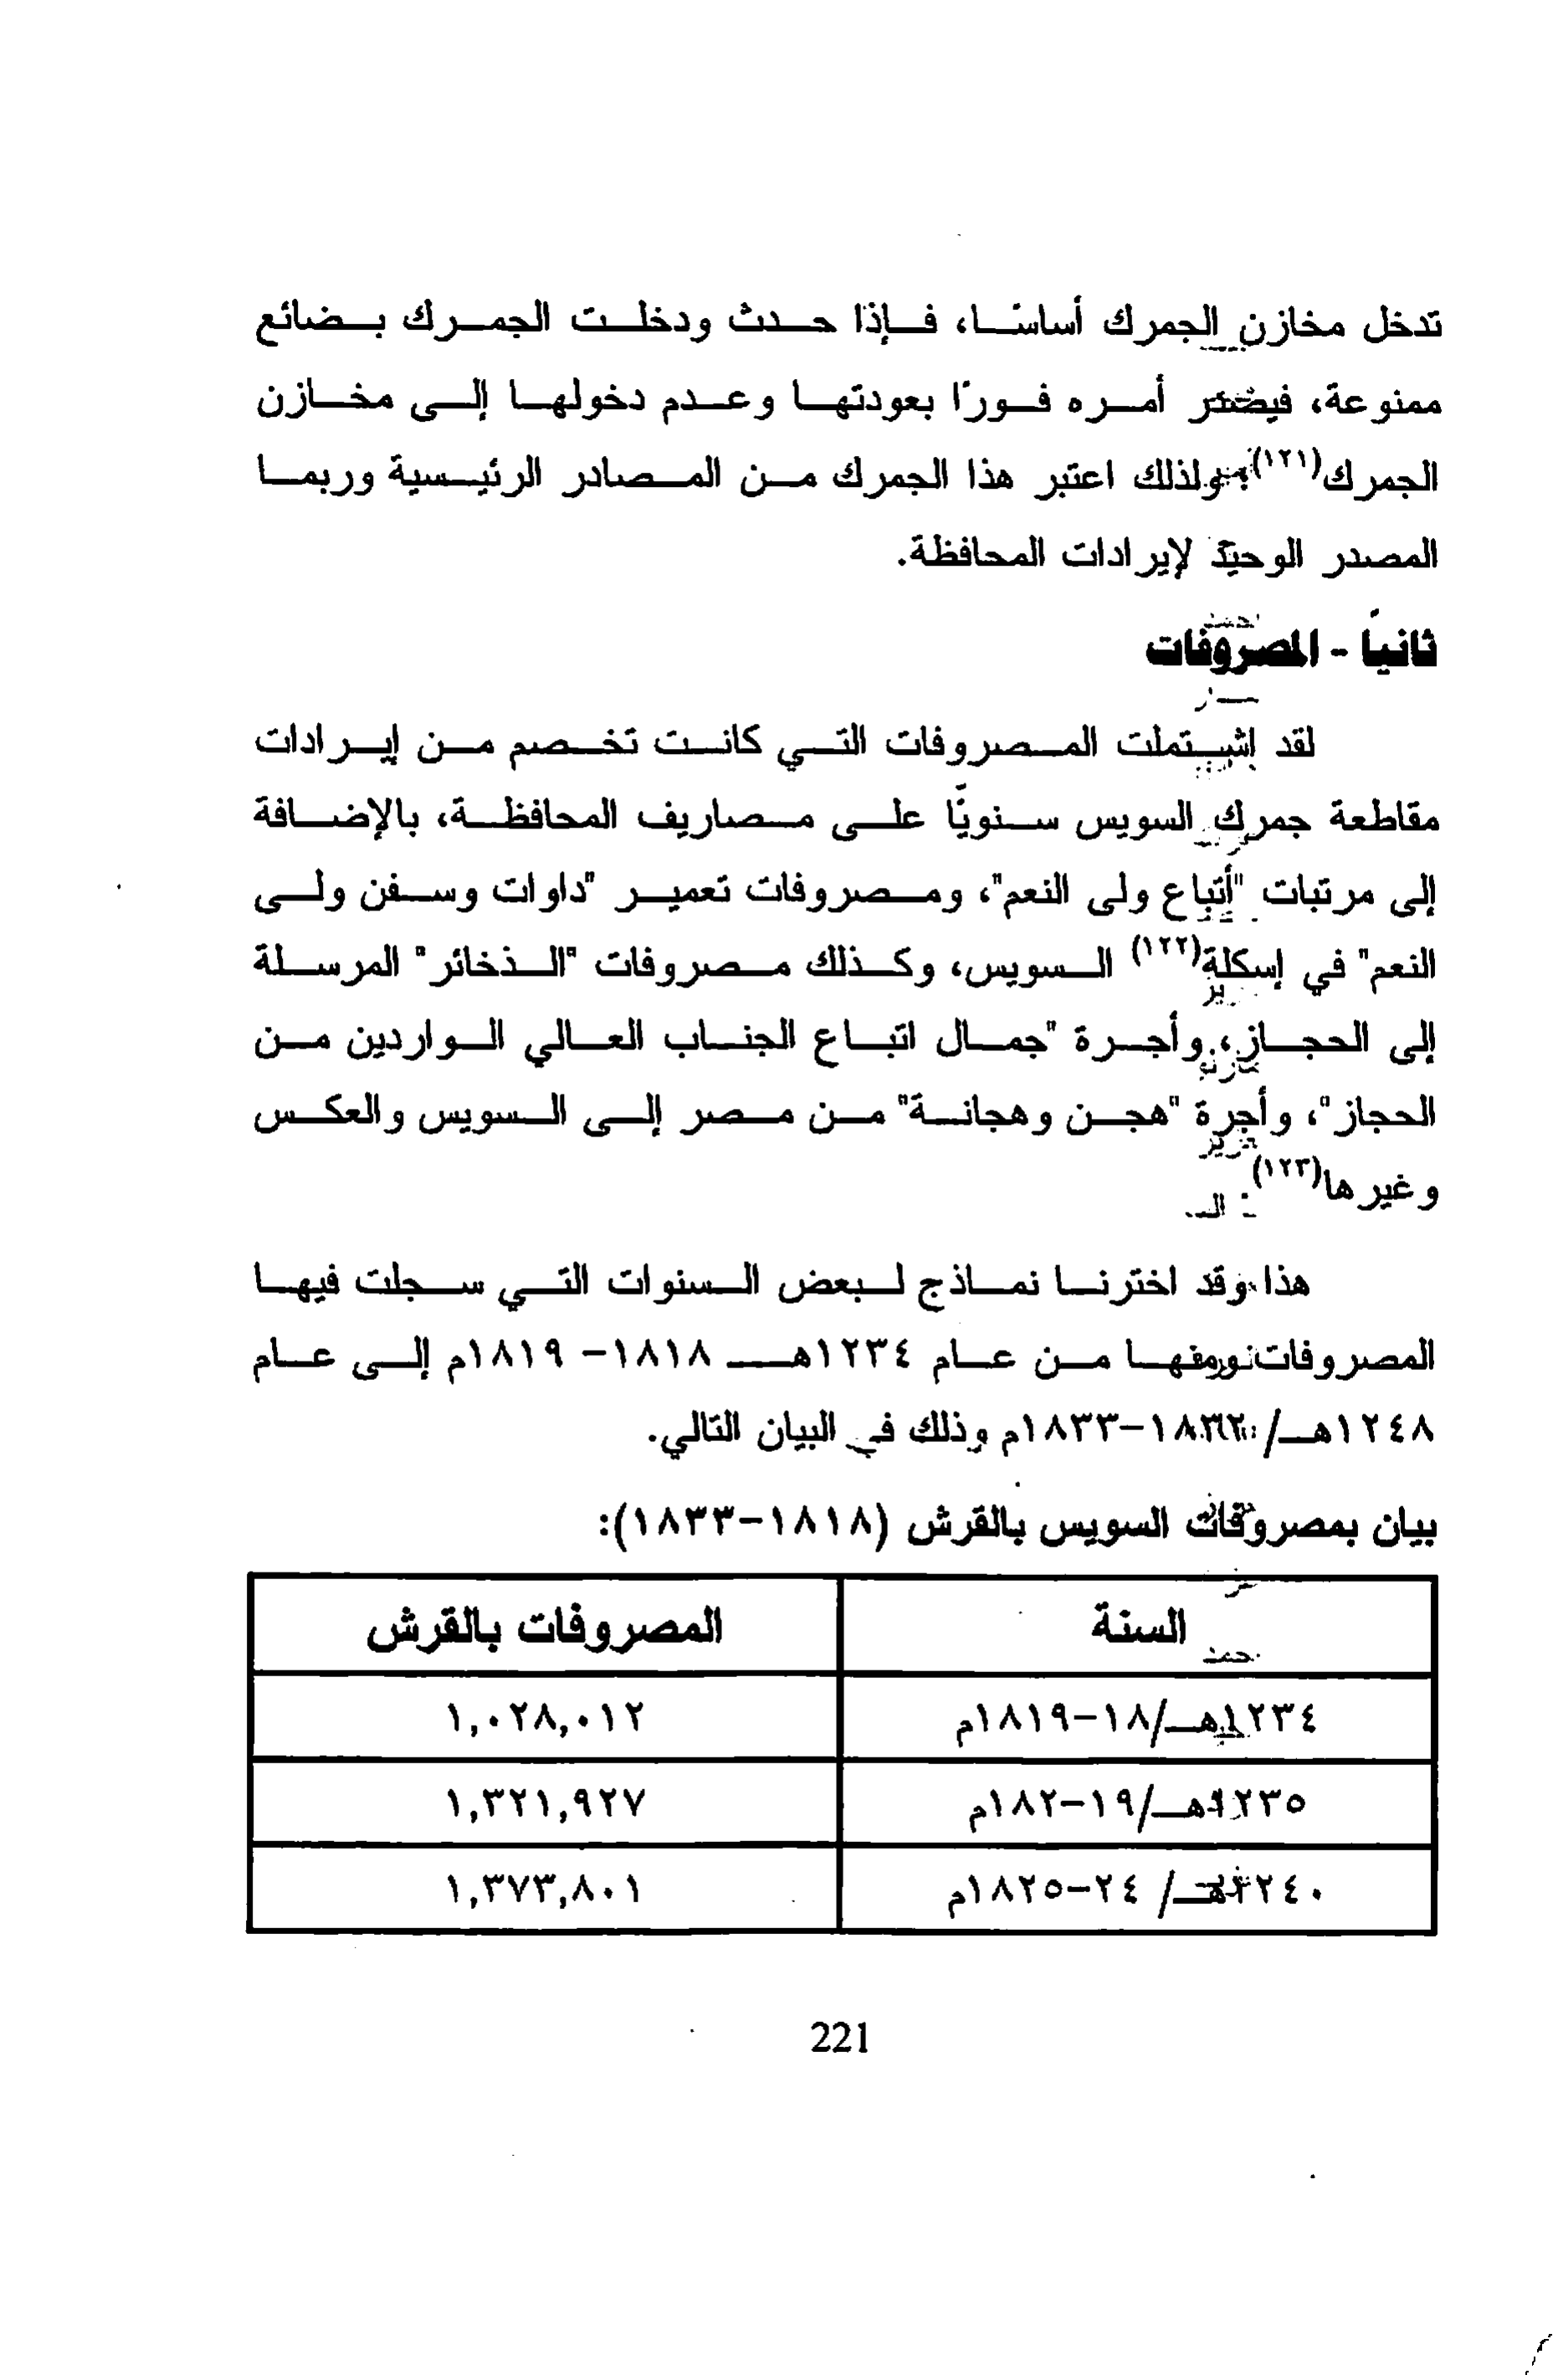 تدخل مخازن الجمرك أساسًا، فإذا حدث ودخلت الجمرك بضائع
ممنوعة، فيصدر أمره فورًا بعودتها وعدم دخولها إلى مخازن
الجمرك(١٢١)؛ ولذلك اعتبر هذا الجمرك من المصادر الرئيسية وربما
المصدر الوحيد لإيرادات المحافظة.
ثانياً - المصروفات
لقد إشتملت المصروفات التي كانت تخصم من إيرادات
مقاطعة جمرك السويس سنويًا على مصاريف المحافظة، بالإضافة
إلى مرتبات "أتباع ولى النعم"، ومصروفات تعمير "داوات وسفن ولى
النعم" في إسكلة(١٢٢) السويس، وكذلك مصروفات "الذخائر" المرسلة
إلى الحجاز، وأجرة "جمال اتباع الجناب العالي الواردين من
الحجاز"، وأجرة "هجن وهجانة" من مصر إلى السويس والعكس
وغيرها(١٢٣)
هذا وقد اخترنا نماذج لبعض السنوات التي سجلت فيها
المصروفات ومنها من عام ١٢٣٤هـ ١٨١٨- ١٨١٩م إلى عام
١٢٤٨هـ/ ١٨٣٢-١٨٣٣م وذلك في البيان التالي.
بيان بمصروفات السويس بالقرش (١٨١٨-١٨٣٣):
السنة المصروفات بالقرش
١٢٣٤هـ/١٨-١٨١٩م ١,٠٢٨,٠١٢
١٢٣٥هـ/١٩-١٨٢م ١,٣٢١,٩٢٧
١٢٤٠هـ/ ٢٤-١٨٢٥م ١,٣٧٣,٨٠١
221